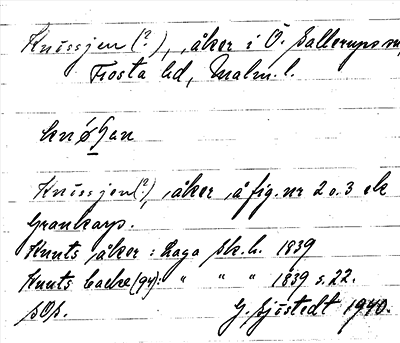 Knissjen(?), åker i Ö. Sallerups sn,
Frosta hd, Malm. l.
Knissjen(?), åker, å fig. nr 2 o. 3 sk
Grankarp.
Knuts åker: Laga sk. h. 1839
Knuts backe(94): " " " 1839 s. 22.
sOs. G. Sjöstedt 1940.